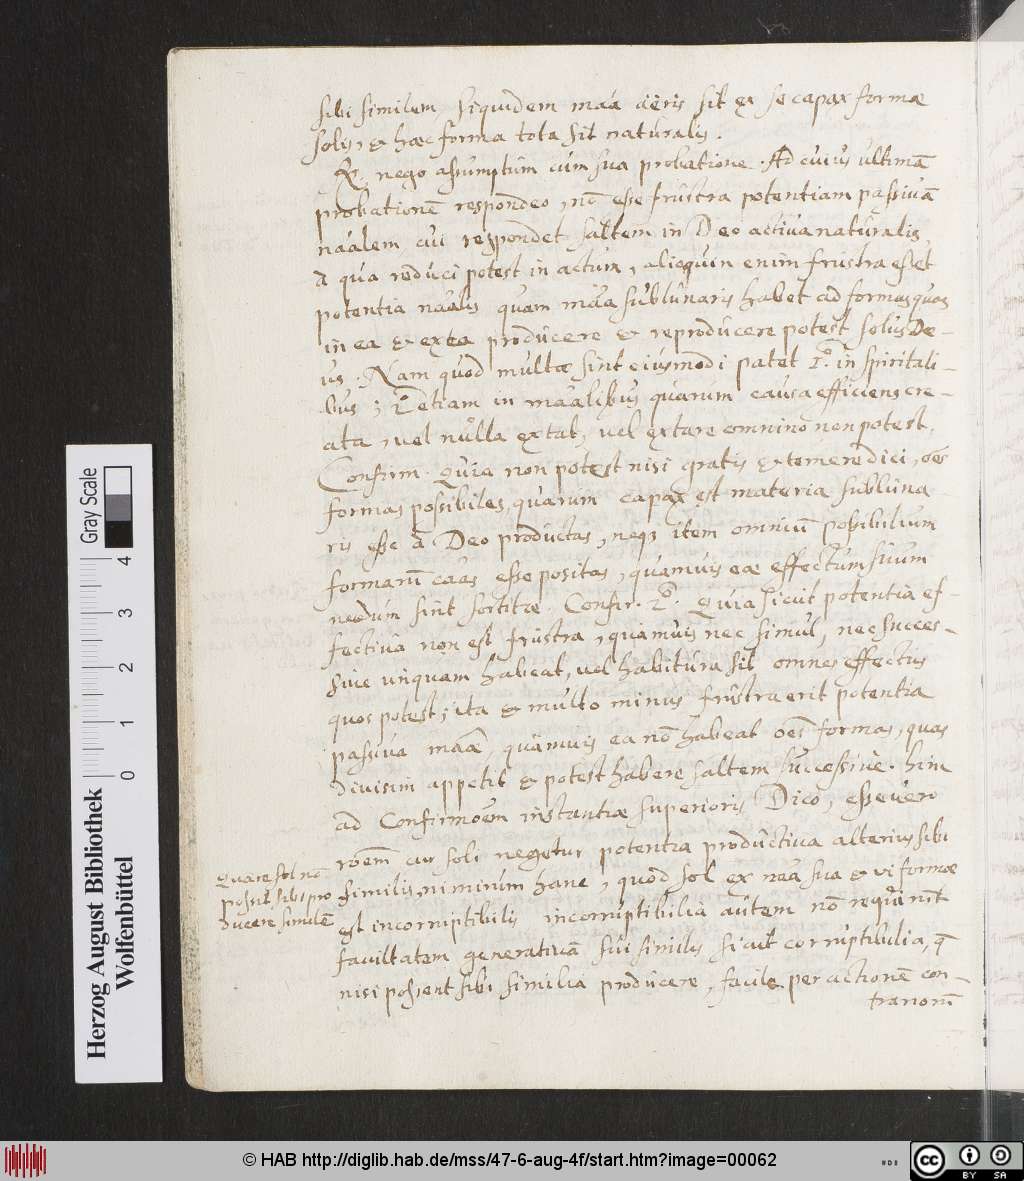 sibi similem, siquidem maã aëris sit ex se capax formæ
solis, & hæc forma tota sit naturalis.
R. nego assumptum cum sua probatione. Ad cuius ultimā
probationē respondeo, nō esse frustra potentiam passivā
náalem cui respondet saltem in Deo activa naturalis
a qua reduci potest in actum, alioquin enim frustra esset
potentia náalis quam mãa sublunaris habet ad formas quas
in ea & ex ea producere & reproducere potest solus De-
us. Nam quod multæ sint eiusmodi patet 1º. in spiritali-
bus; 2º etiam in maãlibus quarum causa efficiens cre-
ata, vel nulla extat, vel extare omnino non potest.
Confirm. Quia non potest nisi gratis & temere dici, oẽs
formas possibiles, quarum capax est materia subluna-
ris, esse a Deo productas, neq3 item omniū possibilium
formarū cãas esse positas, quamvis eæ effectum suum
nedum sint sortitæ. Confir. 2º. Quia sicut potentia ef-
fectiva non est frustra, quamvis nec simul, nec succes-
sive unquam habeat, vel habitura sit omnes effectus
quos potest; ita & multo minus frustra erit potentia
passiva maæ, quamvis ea nō habeat oẽs formas, quas
divisim appetit & potest habere saltem successivè. hinc
ad Confirmõem instantiæ superioris Dico, esse veram
roẽm cur soli negetur potentia productiva alterius sibi
similis, nimirum hanc, quod sol ex mãa sua & vi formæ
est incorruptibilis incorruptibilia autem nō requirunt
facultatem generativā sui similis sicut corruptibilia, q̄
nisi possent sibi similia producere, facile per actionē con-
trariorū
Quare sol nō
possit sibi pro
ducere similē
Herzog August Bibliothek
Wolfenbüttel
0 1 2 3 4
Gray Scale
© HAB http://diglib.hab.de/mss/47-6-aug-4f/start.htm?image=00062
cc BY SA